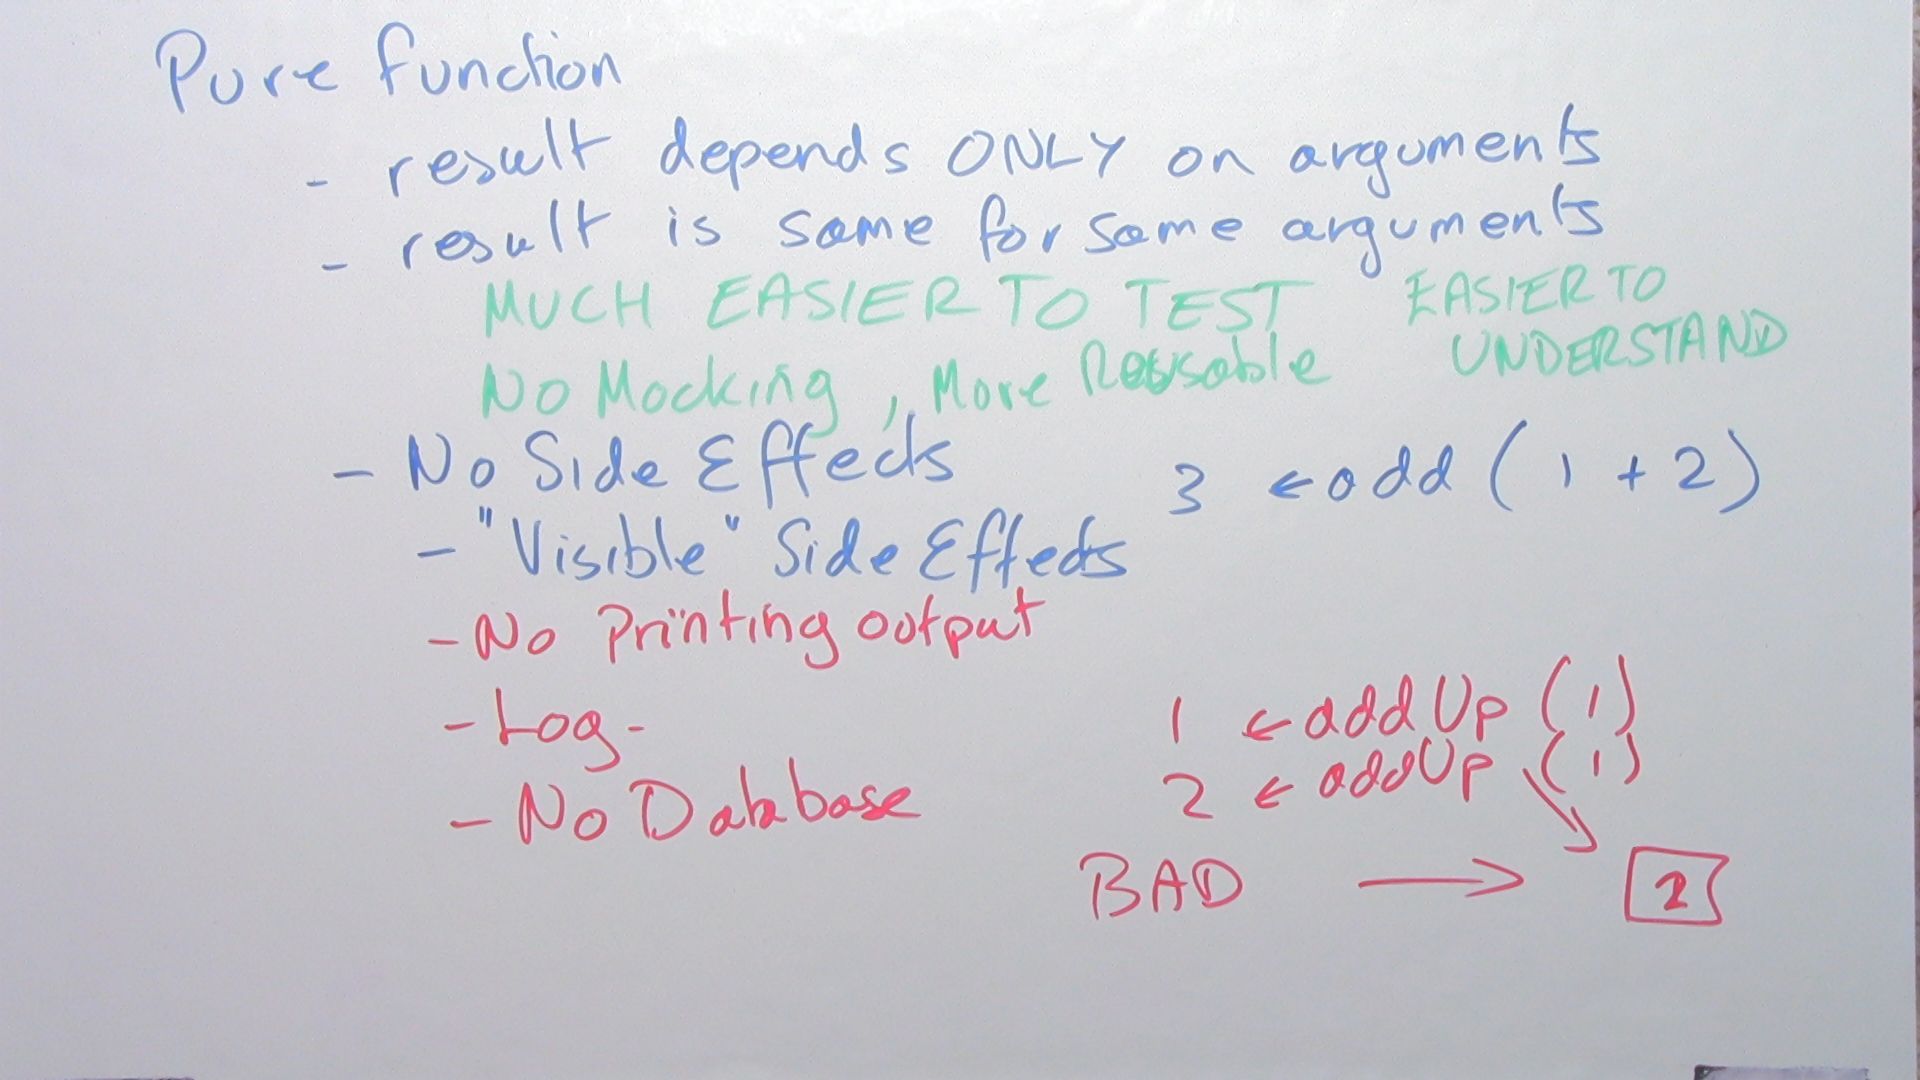 Pure function
- result depends ONLY on arguments
- result is same for same arguments
MUCH EASIER TO TEST EASIER TO UNDERSTAND
No Mocking, More Reusable
- No Side Effects
3 ← add (1 + 2)
- "Visible" Side Effects
- No Printing output
- Log -
- No Database
1 ← addUp (1)
2 ← addUp (1)
BAD → 2